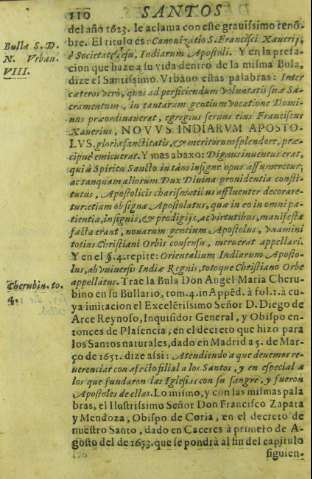 110 SANTOS
del año 1623. le aclama con este grauissimo renõ-
bre. El titulo es: Canonizatio S. Francisci Xauerij,
è Societate Iesu, Indiarum Apostoli. Y en la prefa-
cion que haze a su vida dentro de la misma Bula,
dize el Santissimo Vrbano estas palabras: Inter
cæteros verò, quos ad perficiendum Voluntatis suæ Sa-
cramentum, in tantaram gentium vocatione Domi-
nus præordinauerat, egregius seruus eius Franciscus
Xauerius, NOVVS INDIARVM APOSTO-
LVS, gloria sanctitatis, & meritorum splendore, præ-
cipuè emicuerat. Y mas abaxo: Dignus inuentus erat,
qui à Spiritu Sancto in tam insigne opus assumeretur,
ac tanquam aliorum Dux Diuina prouidentia consti-
tutus, Apostolicis charismatibus affluenter decorare-
tur: etiam obsigna Apostolatus, quæ in eo in omni pa-
tientia, insignis, & prodigijs, ac virtutibus, manifesta
facta erant, nouarum gentium Apostolus, vnanimi
totius Christiani Orbis consensu, meruerat appellari.
Y en el §.4. repite: Orientalium Indiarum Aposto-
lus, ab vniuersis Indiæ Regnis, totoque Christiano Orbe
appellatus. Trae la Bula Don Angel Maria Cheru-
bino en su Bullario, tom.4. in Appẽd. à fol.1. à cu-
ya imitacion el Excelẽtissimo Señor D. Diego de
Arce Reynoso, Inquisidor General, y Obispo en-
tonces de Plasencia, en el decreto que hizo para
los Santos naturales, dado en Madrid a 5. de Mar-
ço de 1651. dize assi: Atendiendo a que deuemos re-
uerenciar con afecto filial a los Santos, y en especial a
los que fundaron las Iglesias con su sangre, y fueron
Apostoles de ellas. Lo mismo, y con las mismas pala
bras, el Ilustrissimo Señor Don Francisco Zapata
y Mendoza, Obispo de Coria, en el decreto de
nuestro Santo, dado en Caceres à primero de A-
gosto del de 1653. que se pondrà al fin del capitulo
siguien-
Bulla S. D.
N. Vrban.
VIII.
Cherubin. to.
4.